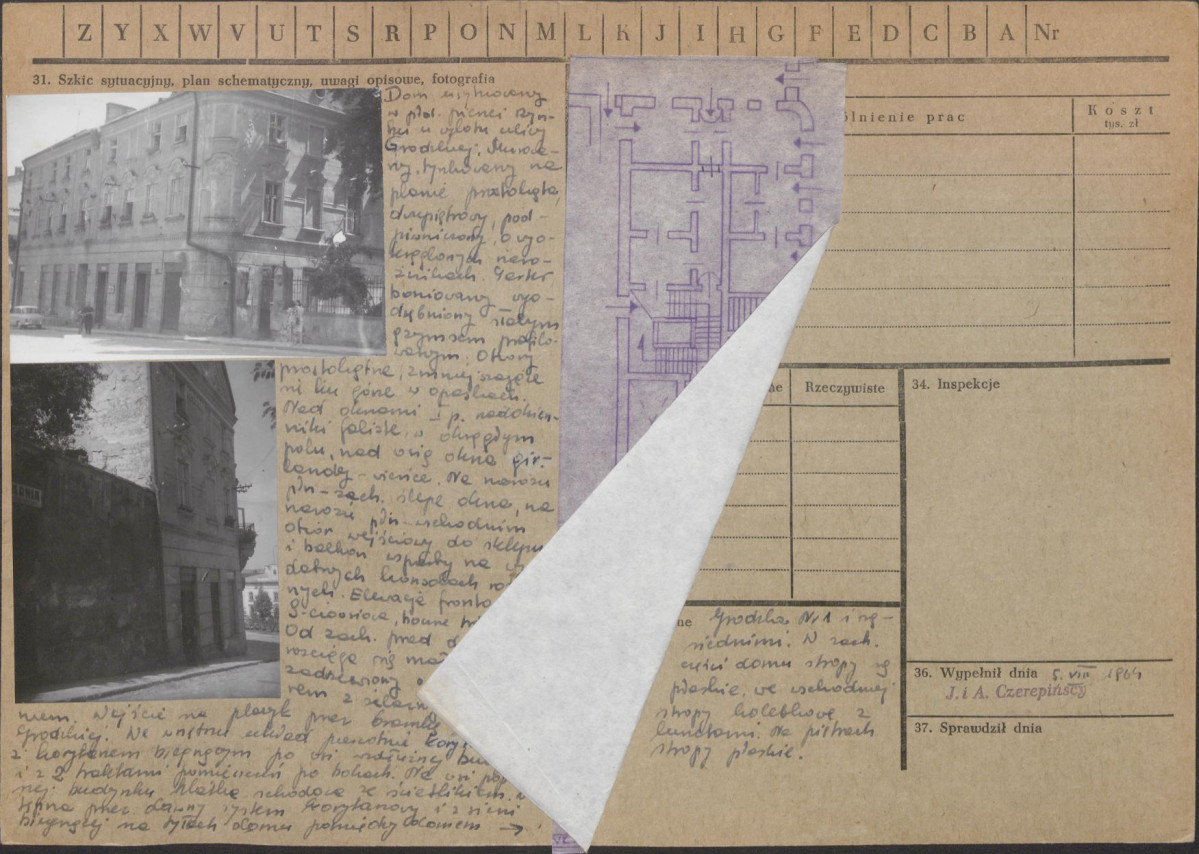 Z Y X W V U T S R P O N M L K J I H G F E D C B A Nr
31. Szkic sytuacyjny, plan schematyczny, uwagi opisowe, fotografia
Dom usytuowany
w płd. pierzei Ryn-
ku u wylotu ulicy
Grodzkiej. Murowa-
ny, tynkowany na
planie prostokąta,
dwupiętrowy, pod-
piwniczony, o wyo-
krąglonych naro-
żnikach. Parter
boniowany wyo-
drębniony
gzymsem profilo-
wanym. Otwory
prostokątne, zmniejszające
się ku górze w opaskach.
Nad oknami I p. nadokien-
niki faliste, o okrągłym
polu, nad osią okna gir-
landy - wieńce. Na narożu
płn-zach. ślepe okna, na
narożu płn-wschodnim
otwór wejściowy do sklepu
i balkon wsparty na
konsolach
nych. Elewacje
8-cioosiowe, boczne
Od zach. przed
rozciąga się
zadrzewiony
rem z
Wejście na placyk przez bramkę
Grodzkiej. We wnętrzu układ pierwotnie
z korytarzem biegnącym po osi wzdłużnej
i z 2 traktami pomieszczeń po bokach. Na osi
nej budynku klatka schodowa ze świetlikiem,
przez dawny system korytarzowy i z sieni
biegnącej na tyłach domu pomiędzy domem →
olnienie prac
Koszt
tys. zł
ne
Rzeczywiste
34. Inspekcje
ne
Grodzka Nr 1 i są-
siednimi. W zach.
części domu stropy są
płaskie, we wschodniej
stropy kolebkowe z
lunetami. Na piętrach
stropy płaskie.
36. Wypełnił dnia 5. VIII 1964
J. i A. Czerepińscy
37. Sprawdził dnia